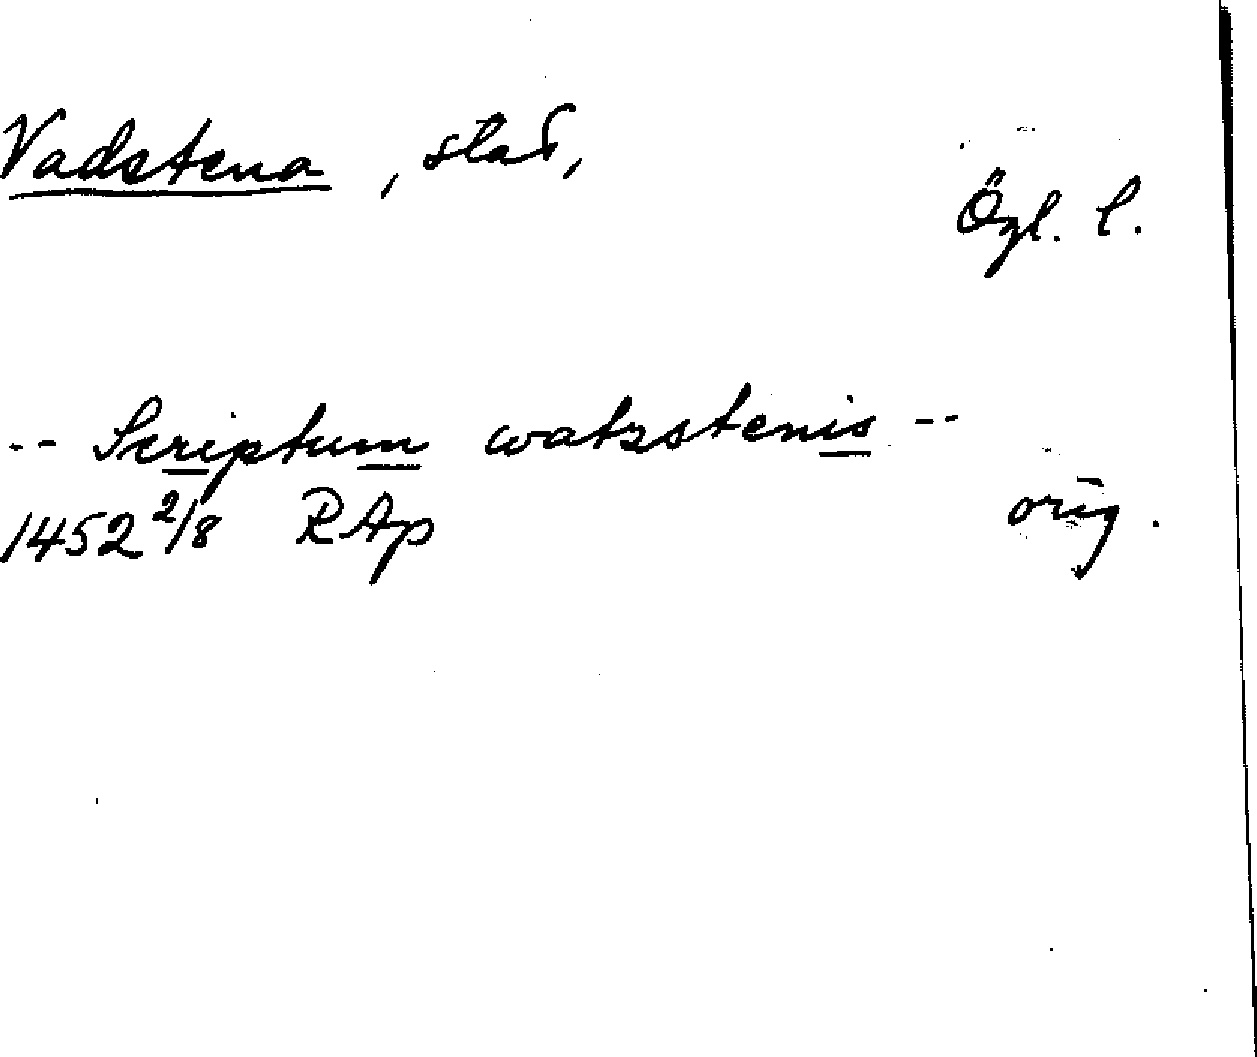 Vadstena, stad,
Ögl. l.
-- Scriptum watzstenis --
1452 2/8 RAp orig.